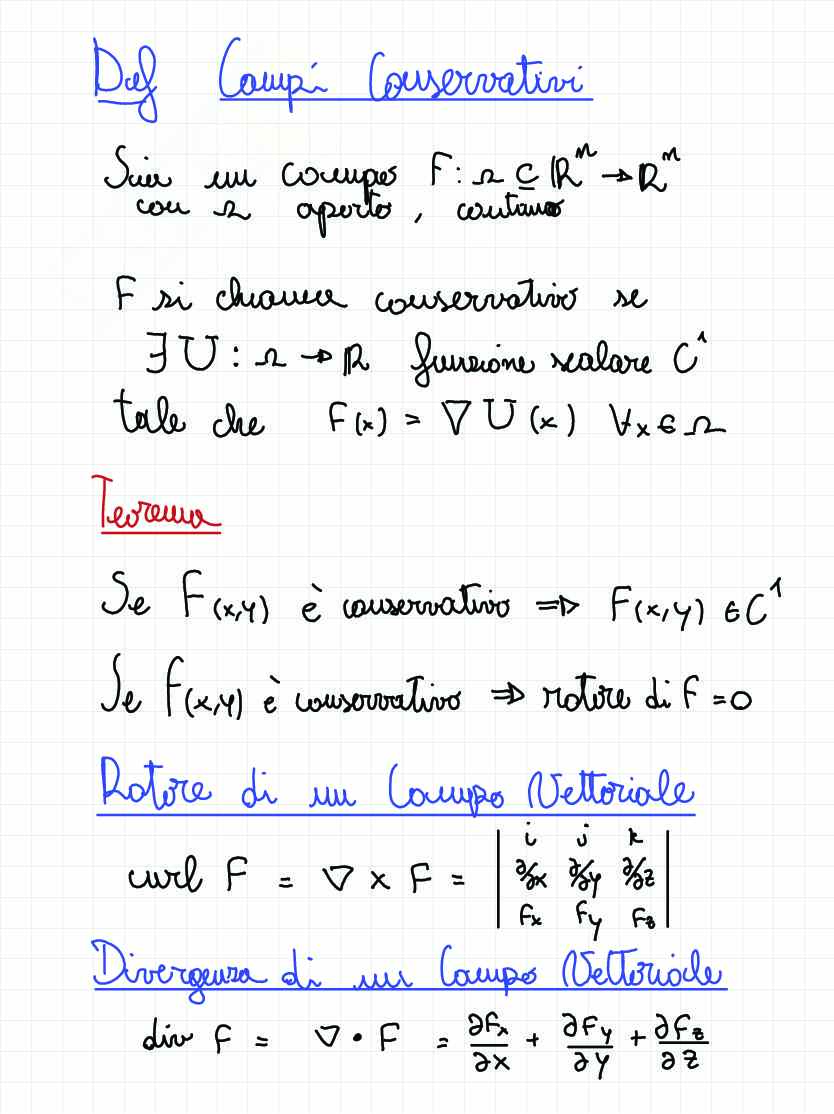 Def Campi Conservativi
Sia un campo F: Ω ⊆ ℝⁿ → ℝⁿ
con Ω aperto, continuo
F si chiama conservativo se
∃ U : Ω → ℝ funzione scalare C¹
tale che F(x) = ∇ U (x) ∀x ∈ Ω
Teorema
Se F(x,y) è conservativo => F(x,y) ∈ C¹
Se F(x,y) è conservativo => rotore di F = 0
Rotore di un Campo Vettoriale
i j k
curl F = ∇ × F = | ∂/∂x ∂/∂y ∂/∂z |
Fx Fy Fz
Divergenza di un Campo Vettoriale
div F = ∇ • F = ∂Fx/∂x + ∂Fy/∂y + ∂Fz/∂z